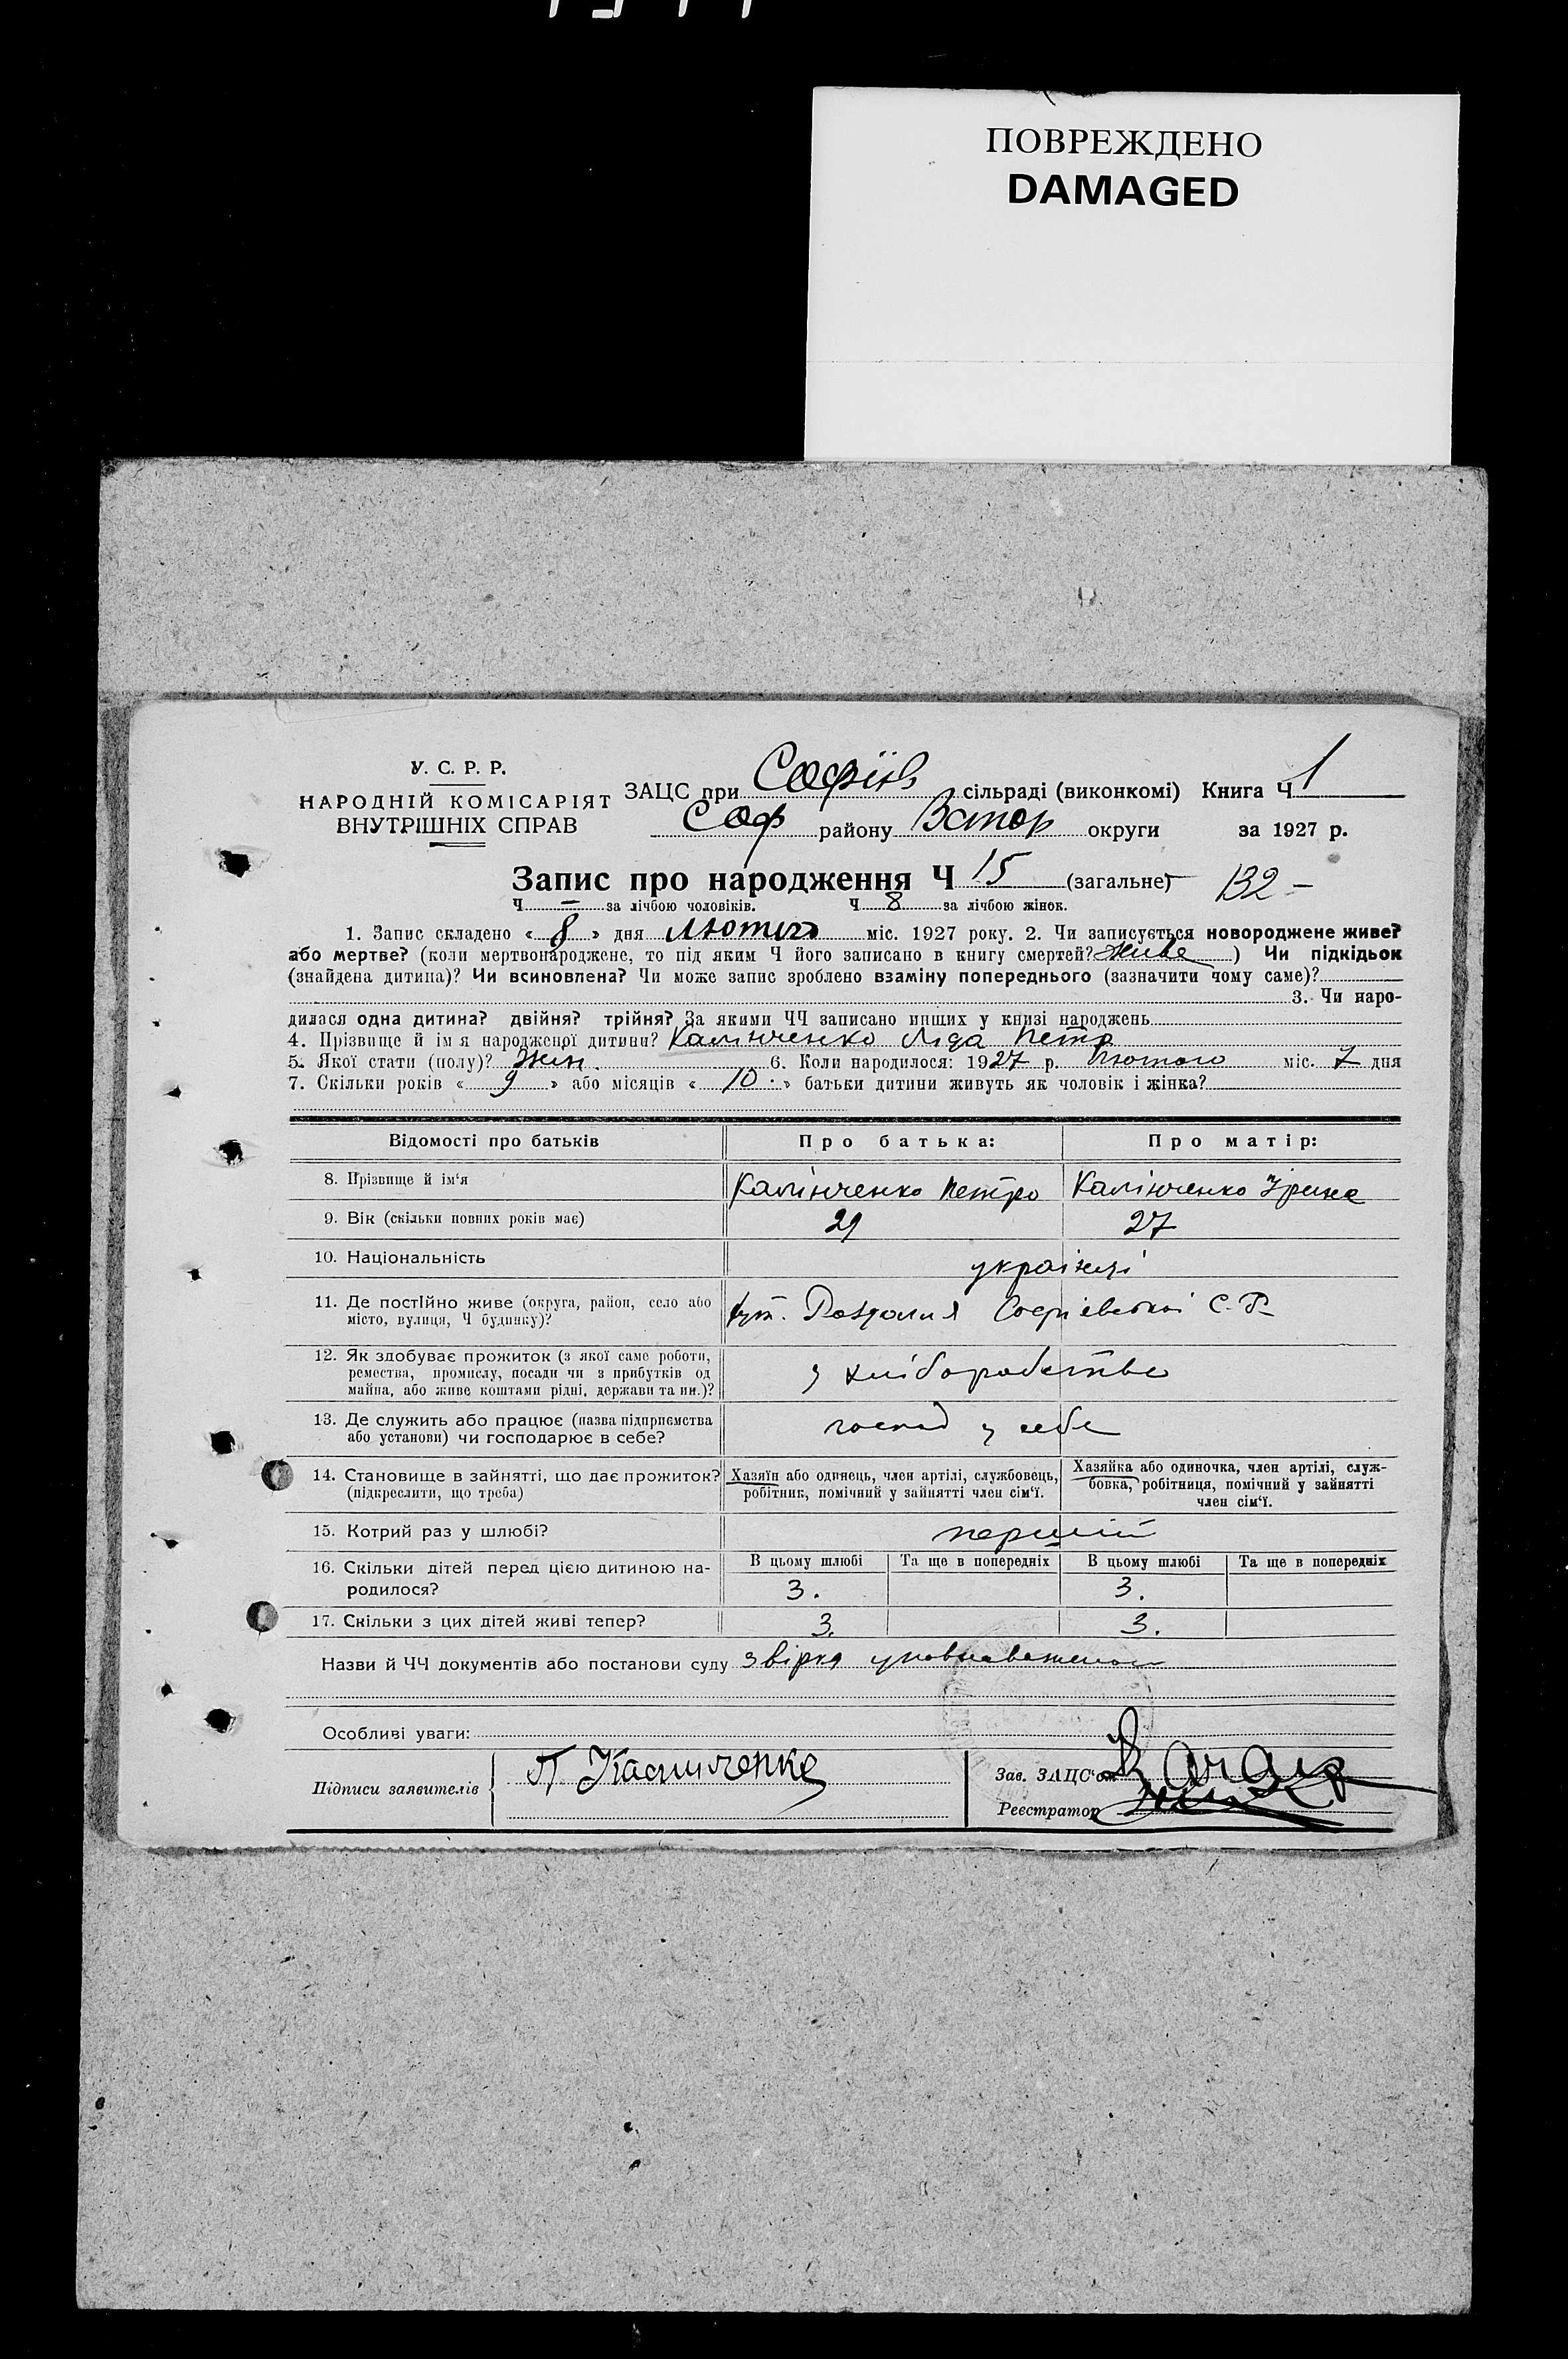 ПОВРЕЖДЕНО
DAMAGED
У. С. Р. Р.
НАРОДНІЙ КОМІСАРІЯТ
ВНУТРІШНІХ СПРАВ
ЗАЦС при Софіїв сільраді (виконкомі) Книга Ч 1
Соф району Запор округи за 1927 р.
Запис про народження Ч 15 (загальне) 132 –
Ч – за лічбою чоловіків. Ч 8 за лічбою жінок.
1. Запис складено « 8 » дня Лютого міс. 1927 року. 2. Чи записується новороджене живе?
або мертве? (коли мертвонароджене, то під яким Ч його записано в книгу смертей? живе ) Чи підкідьок
(знайдена дитина)? Чи всиновлена? Чи може запис зроблено взаміну попереднього (зазначити чому саме)?
3. Чи наро-
дилася одна дитина? двійня? трійня? За якими ЧЧ записано инших у книзі народжень
4. Прізвище й ім'я народженої дитини? Калінченко Ліда Петр
5. Якої стати (полу)? Жін. 6. Коли народилося: 1927 р. Лютого міс. 7 дня
7. Скільки років « 9 » або місяців « 10 » батьки дитини живуть як чоловік і жінка?
Відомості про батьків Про батька: Про матір:
8. Прізвище й ім'я Калінченко Петро Калінченко Ірина
9. Вік (скільки повних років має) 29 27
10. Національність українці
11. Де постійно живе (округа, район, село або
місто, вулиця, Ч будинку)? хут. Роздолля Софієвської С. Р.
12. Як здобуває прожиток (з якої саме роботи,
ремества, промислу, посади чи з прибутків од
майна, або живе коштами рідні, держави та ин.)? з хліборобства
13. Де служить або працює (назва підприємства
або установи) чи господарює в себе? госпад у себе
14. Становище в зайнятті, що дає прожиток?
(підкреслити, що треба)
Хазяїн або одинець, член артілі, службовець,
робітник, помічний у зайнятті член сім'ї.
Хазяйка або одиночка, член артілі, служ-
бовка, робітниця, помічний у зайнятті
член сім'ї.
15. Котрий раз у шлюбі? перший
В цьому шлюбі Та ще в попередніх В цьому шлюбі Та ще в попередніх
16. Скільки дітей перед цією дитиною на-
родилося? 3. 3.
17. Скільки з цих дітей живі тепер? 3. 3.
Назви й ЧЧ документів або постанови суду звірка уповноваженого
Особливі уваги:
Підписи заявителів П Калинченко
Зав. ЗАЦС'ом
Реєстратор